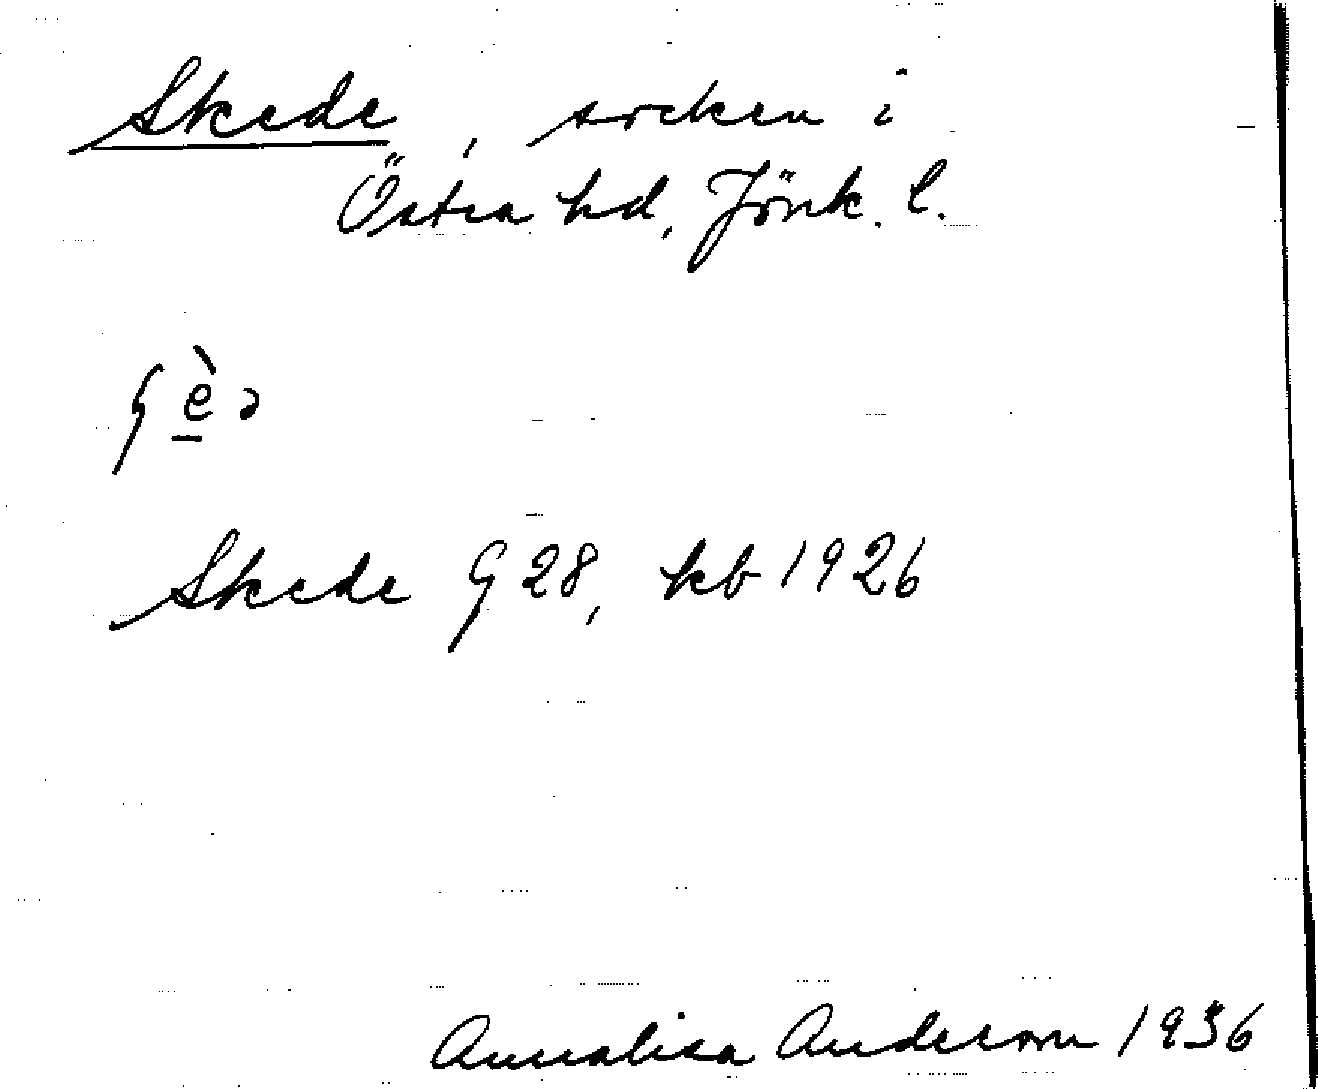 Skede, socken i
Östra hd, Jönk. l.
ʃèə
Skede G 28, kb 1926
Annalisa Anderson 1936